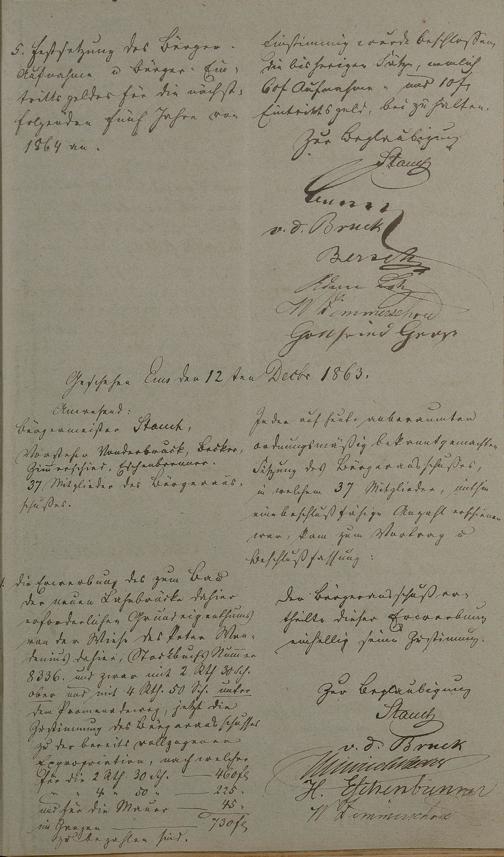 5. Festsetzung des Bürger-
Aufnahme u Bürger-Ein-
trittsgeldes für die nächst-
folgenden fünf Jahre von
1864 an.
Einstimmig wurde beschlossen,
die bisherigen Sätze, nemlich
60f Aufnahme- und 10f
Eintrittsgeld, bei zu halten.
Zur Beglaubigung
Stauch
v. d. Bruck
Bersch
W Zimmerschied
Gottfried
Geschehen Ems den 12ten Decbr 1863.
Anwesend:
Bürgermeister Stauch,
Vorsteher Vonderbruck, Becker,
Zimmerschied, Eschenbrenner.
37 Mitglieder des Bürgeraus-
schußes.
In der auf heute anberaumten
ordnungsmäßig bekanntgemachten
Sitzung des Bürgerausschußes,
in welchem 37 Mitglieder, mithin
eine beschlußfähige Anzahl erschienen
war, kam zum Vortrag u
Beschlußfassung:
1. die Erwerbung des zum Bau
der neuen Lahnbrücke dahier
erforderlichen Grundeigenthums
von der Wiese des Peter
dahier, Stockbuchs Nummer
8336. und zwar mit 2 Rth 30 Sch.
ober und mit 4 Rth. 50 Sch. unter
dem Promenadeweg, jetzt die
Zustimmung des Bürgerausschusses
zu der bereits vollzogenen
Expropriation, nach welcher
für die 2 Rth 30 Sch. — 460f
" " 4 " 50 " — 225.
und für die Mauer — 45.
im Ganzen — 730f
zu bezahlen sind.
Der Bürgerausschuß er-
theilte dieser Erwerbung
einhellig seine Zustimmung.
Zur Beglaubigung
Stauch
v. d. Bruck
H. Eschenbrenner
W Zimmerschied